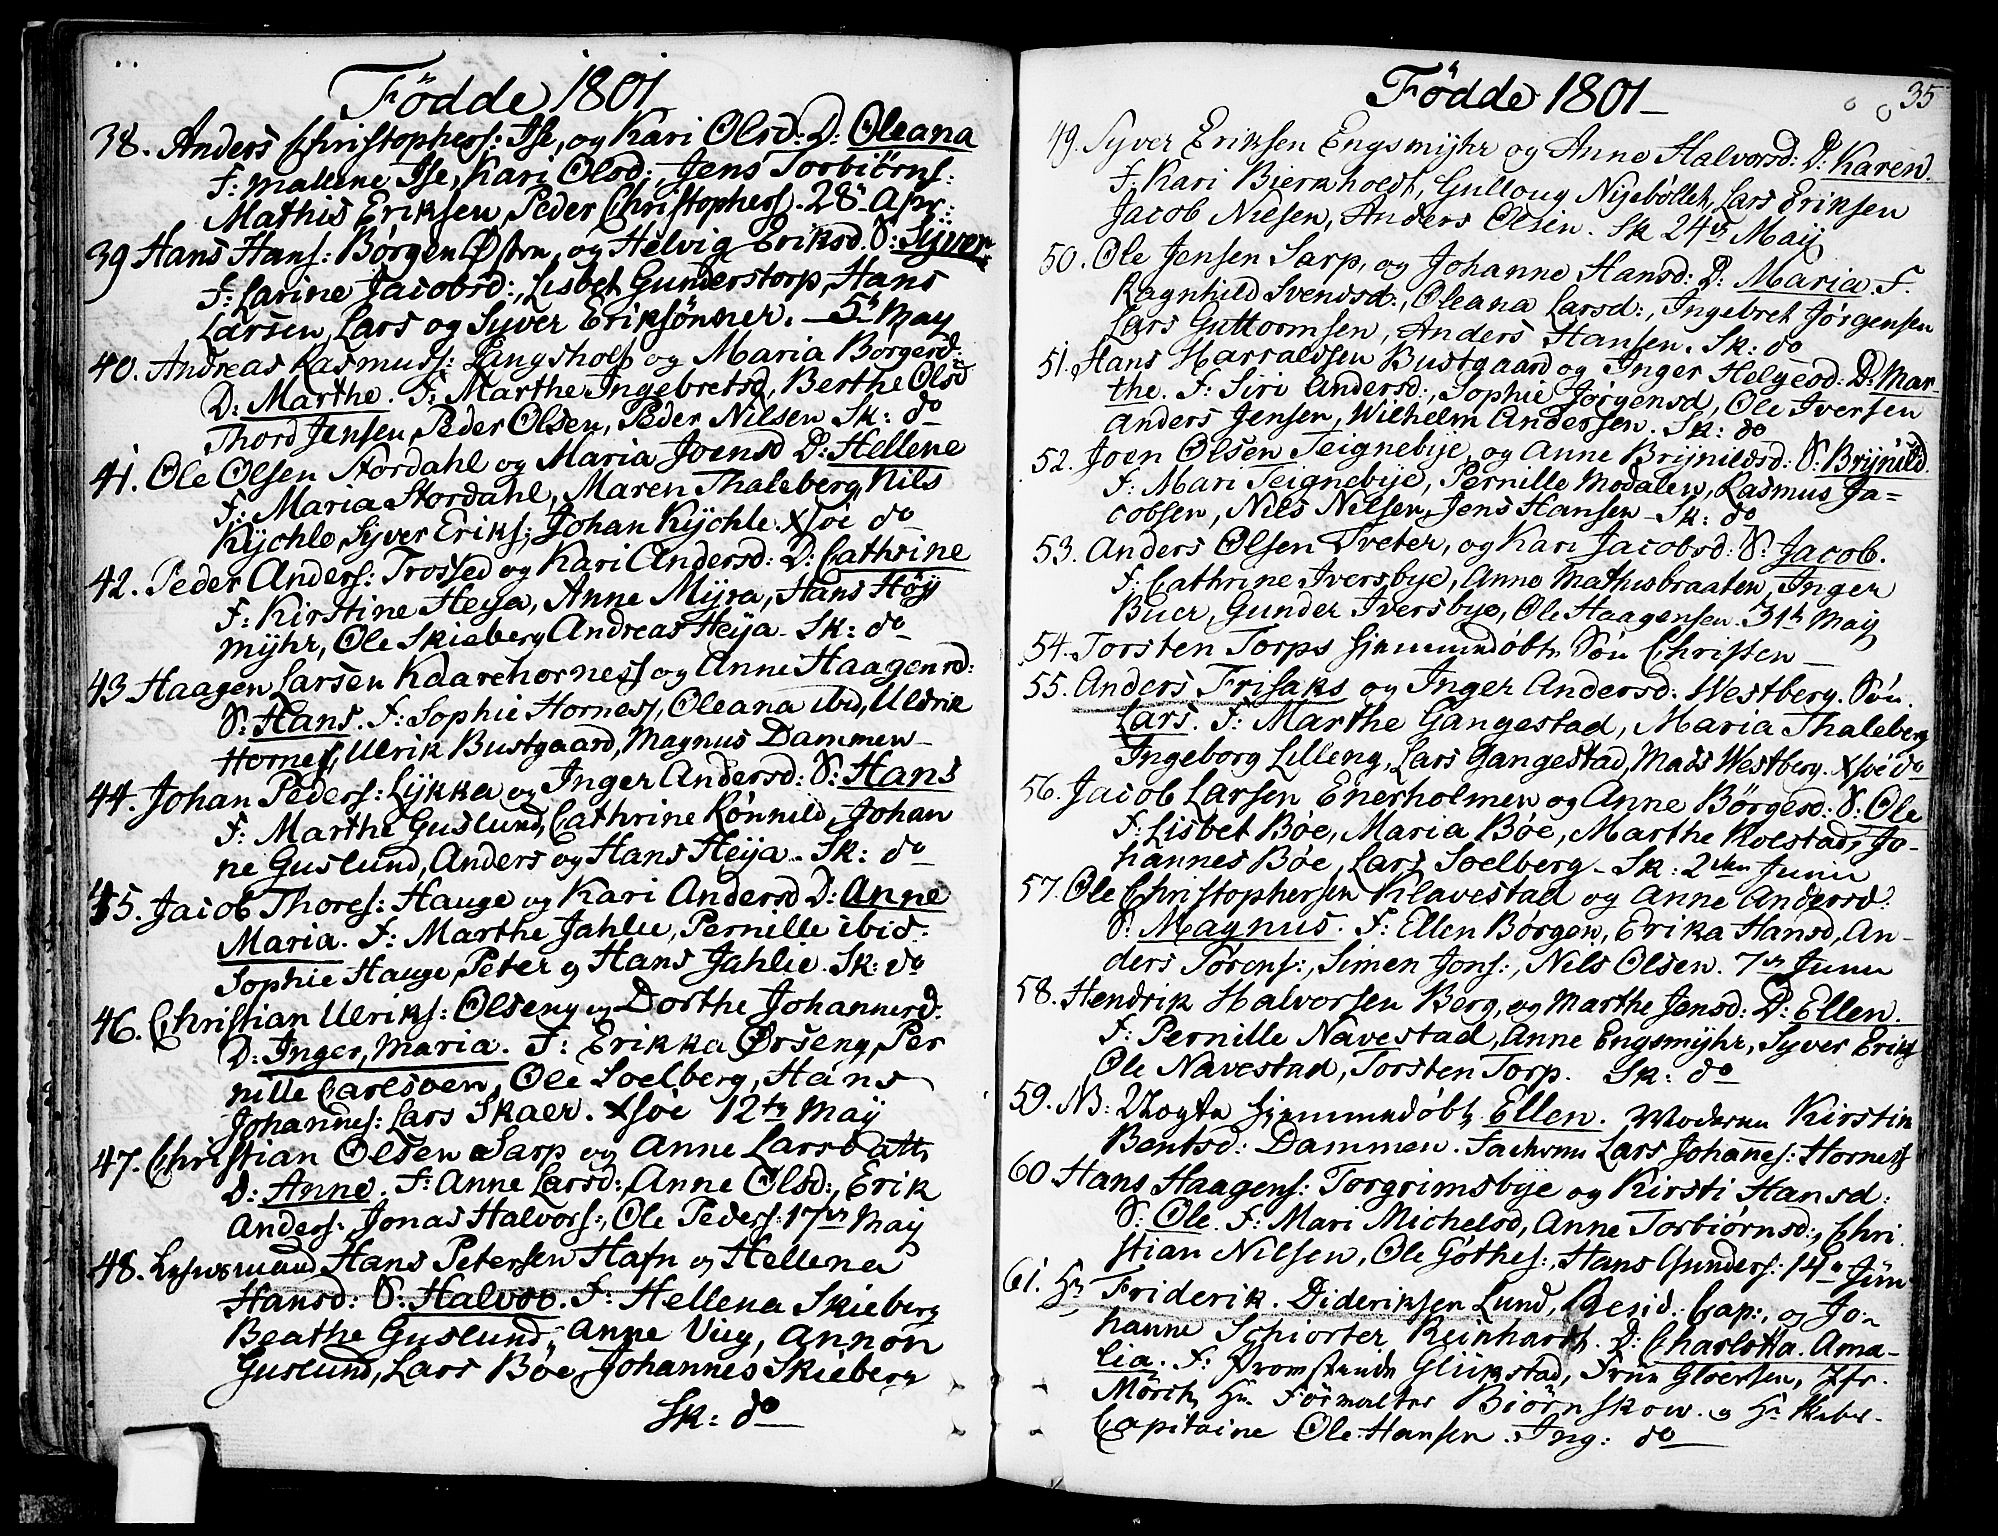 Födde 1801
38. Anders Christophers: Ise, og Kari Olsd: D: Oleana
F: Mallene Ise, Kari Olsd:, Jens Torbiörns:
Mathis Eriksen, Peder Christophers. 28de Apr:
39 Hans Hans: Børgen Østre, og Helvig Eriksd. S: Syver
F: Larine Jacobsd:, Lisbet Gunderstorp, Hans
Larsen, Lars og Syver Eriksönner. 5te May
40. Andreas Rasmuss: Langsholt og Maria Borgersd:
D: Marthe. F: Marthe Ingebretsd, Berthe Olsd
Thord Jensen, Peder Olsen, Peder Nilsen Sk: do
41. Ole Olsen Stordahl og Maria Joensd D: Hellene
F: Maria Stordahl, Maren Thaleberg, Nils
Kychle, Syver Eriks:, Johan Kychle. Xsöe do
42. Peder Anders: Trossed og Kari Andersd: D: Cathrine
F: Kirstine Heija, Anne Myra, Hans Höy
myhr, Ole Skieberg, Andreas Heija. Sk: do
43 Haagen Larsen Kaarehorness og Anne Haagensd:
S: Hans. F: Sophie Horness, Oleana ibid, Uldrik
Horness, Ulrik Bustgaard, Magnus Dammen
44. Johan Peders: Lykka og Inger Andersd: S: Hans
F: Marthe Guslund, Cathrine Rönnild, Johan
ne Guslund, Anders og Hans Heija. Sk: do
45. Jacob Thores: Hauge og Kari Andersd D: Anne
Maria. F: Marthe Jahlie, Pernille ibid:
Sophie Hauge, Peter og Hans Jahlie. Sk: do
46. Christian Ulriks: Olseng og Dorthe Johannesd.
D: Inger, Maria. F: Erikka Ørseng, Per
nille Carlsøen, Ole Soelberg, Hans
Johannes: Lars Skaer. Xsöe 12te May
47. Christian Olsen Sarp og Anne Larsdatt.
D: Anne. F: Anne Larsd:, Anne Olsd:, Erik
Anders: Jonas Halvors:, Ole Peders: 17de May
48. Lensmand Hans Petersen Hafn og Hellena
Hansd: S: Halvor. F: Hellena Skieberg
Beathe Guslund, Anne Vieg, Annon
Guslund, Lars Böe, Johannes Skieberg
Sk: do
Födde 1801
35
49. Syver Eriksen Engsmyhr og Anne Halvorsd: D: Karen.
F: Kari Biernholdt, Gulloug Nyebøllet, Lars Eriksen
Jacob Nielsen, Anders Olsen. Sk 24de May
50. Ole Jensen Sarp, og Johanne Hansd: D: Maria. F.
Ragnhild Svendsd:, Oleana Larsd:, Ingebret Jørgensen
Lars Guttormsen, Anders Hansen. Sk: do
51. Hans Harraldsen Bustgaard og Inger Helgesd: D: Mar-
the. F: Siri Andersd:, Sophie Jørgensd, Ole Iversen
Anders Jensen, Wilhelm Andersen. Sk: do
52. Joen Olsen Teignebye, og Anne Brynildsd: S: Brynild.
F: Mari Teignebye, Pernille Modalen, Rasmus Ja=
cobsen, Nils Nilsen, Jens Hansen. Sk: do
53. Anders Olsen Tveter, og Kari Jacobsd: S: Jacob.
F: Cathrine Iversbye, Anne Mathisbraaten, Inger
Buer, Gunder Iversbye, Ole Haagensen. 31te May
54. Torsten Torps hjemmedöbte Sön Christen
55. Anders Frisaks og Inger Andersd: Westberg. Sön.
Lars. F: Marthe Gangestad, Maria Thaleberg
Ingeborg Lilleng, Lars Gangestad, Mads Westberg. Xsöe do
56. Jacob Larsen Enerholmen og Anne Børgesd: S: Ole
F: Lisbet Bøe, Maria Bøe, Marthe Rolstad, Jo-
hannes Bøe, Lars Soelberg. Sk: 2den Junii
57. Ole Christophersen Klavestad og Anne Andersd:
S: Magnus. F: Ellen Børgen, Erika Hansd, An-
ders Sørens:, Simen Jons:, Nils Olsen. 7de Junii
58. Hendrik Halvorsen Berg, og Marthe Jensd: D: Ellen.
F: Pernille Navestad, Anne Engsmyhr, Syver Eriks
Ole Navestad, Torsten Torp. Sk: do
59. NB: Uægte hjemmedöbt Ellen. Moderen Kirstin
Bentsd: Dammen. Faderen Lars Johannes: Horness
60 Hans Haagens: Torgrimsbye og Kirsti Hansd:
S: Ole. F: Mari Michelsd, Anne Torbiørnsd:, Chri
stian Nilsen, Ole Göthes:, Hans Gunders: 14de Jun
61. Hr Friderik. Dideriksen Lund, Resid: Cap:, og Jo-
hanne Schiorter Reinhardt. D: Charlotta. Ama-
lia. F: Glükstad, Frue Gloersen, Jfr.
Mörch, Hr. Forvalter Biörnskow. og Hr
Capitaine Ole Hansen. Ing: do